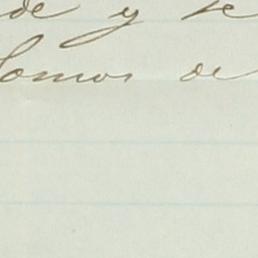 de y se
Somos de